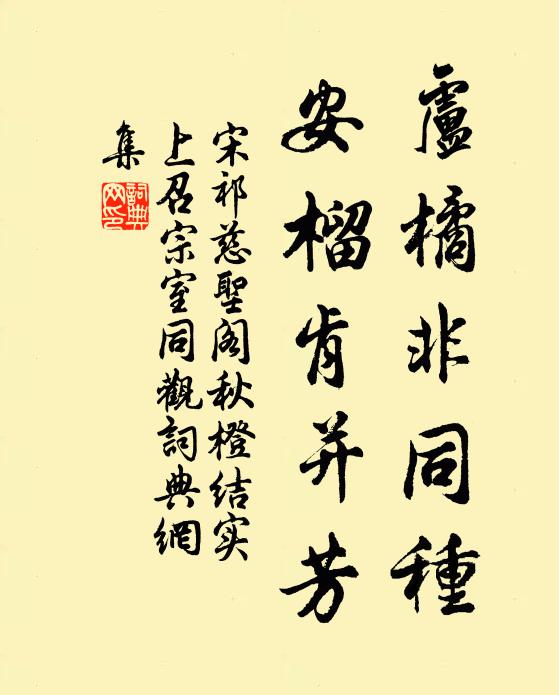 盧橘非同種
安榴肯并芳
宋祁慈聖阁秋橙结实
上召宗室同觀詞典網
集
詞典网印